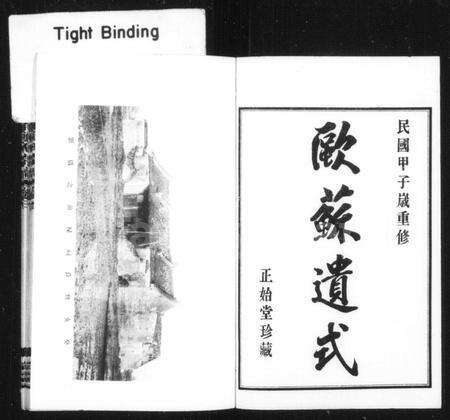 Tight Binding
民國甲子歲重修
歐蘇遺式
正始堂珍藏